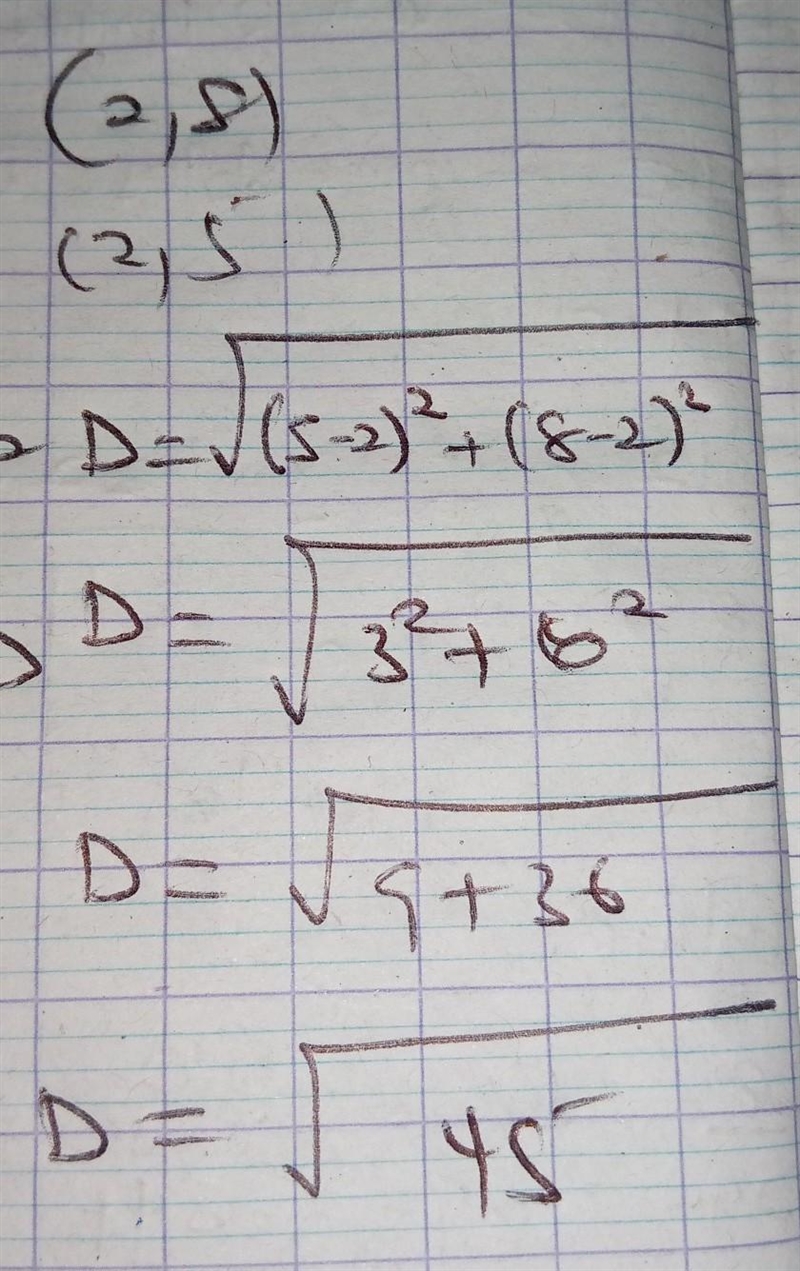 (2,8)
(2,5)
D=√(5-2)²+(8-2)²
D=√3²+6²
D=√9+36
D=√45